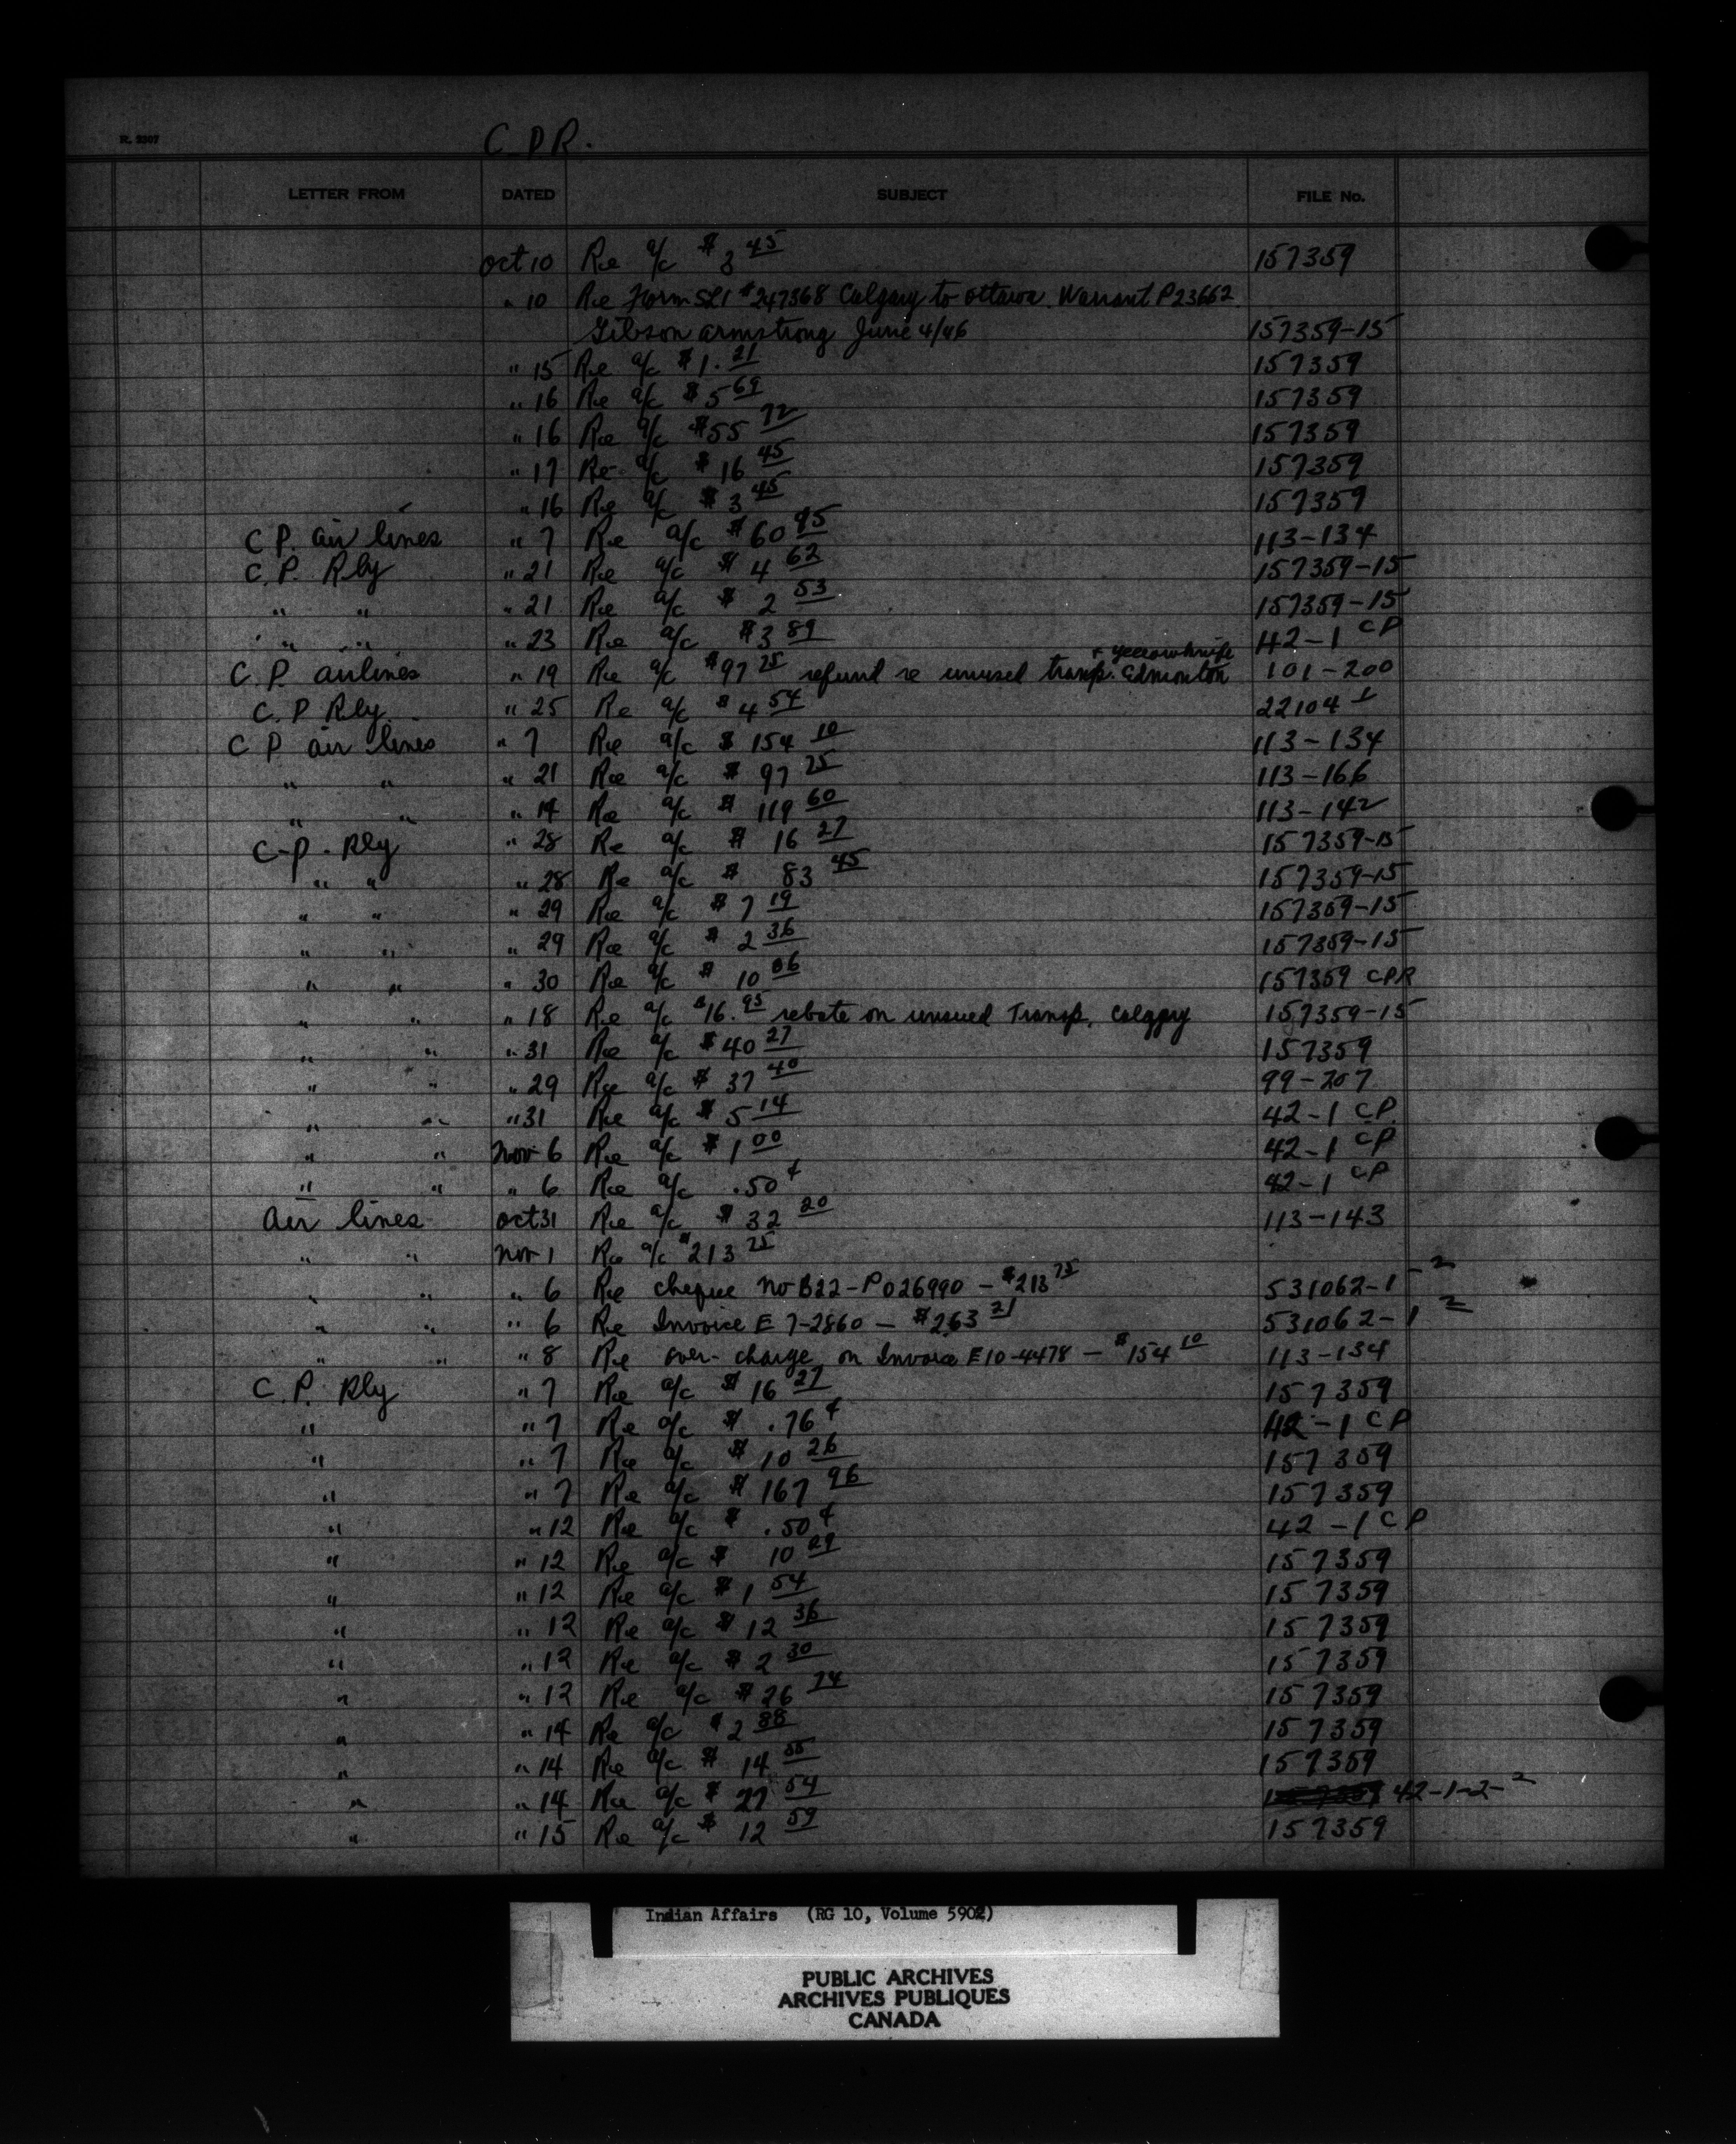 R. 2307
C.P.R.
LETTER FROM DATED SUBJECT FILE No.
Oct 10 Re a/c $3 45 157359
" 10 Re Form SL1 #247368 Calgary to Ottawa. Warrant P23662
Gibson Armstrong June 4/46 157359-15
" 15 Re a/c $1.21 157359
" 16 Re a/c $5 69 157359
" 16 Re a/c $55 72 157359
" 17 Re a/c $16 45 157359
" 16 Re a/c $3 45 157359
C P. Air lines " 7 Re a/c $60 95 113-134
C.P. Rly " 21 Re a/c $4 62 157359-15
" " " 21 Re a/c $2 53 157359-15
" " " 23 Re a/c $3 89 42-1 CP
+ yellowknife
C.P. airlines " 19 Re a/c $97 25 refund re unused transp. Edmonton 101-200
C.P Rly. " 25 Re a/c $4 54 22104-1
C P air lines " 7 Re a/c $154 10 113-134
" " " 21 Re a/c $97 25 113-166
" " " 14 Re a/c $119 60 113-142
C-P. Rly " 28 Re a/c $16 27 157359-15
" " " 28 Re a/c $83 45 157359-15
" " " 29 Re a/c $7 19 157359-15
" " " 29 Re a/c $2 36 157359-15
" " " 30 Re a/c $10 06 157359 CPR
" " " 18 Re a/c $16.95 rebate on unused Transp. Calgary 157359-15
" " " 31 Re a/c $40 27 157359
" " " 29 Re a/c $37 40 99-207
" " " 31 Re a/c $5 14 42-1 CP
" " Nov 6 Re a/c $1 00 42-1 CP
" " " 6 Re a/c .50 ¢ 42-1 CP
Air lines Oct 31 Re a/c $32 20 113-143
" " Nov 1 Re a/c $213 25
" " " 6 Re cheque No B22-P026990 - $213 75 531062-1-2
" " " 6 Re Invoice E 7-2860 - $263 21 531062-1 2
" " " 8 Re over-charge on Invoice E10-4478 - $154 10 113-134
C.P. Rly " 7 Re a/c $16 27 157359
" " 7 Re a/c $.76 ¢ 42-1 CP
" " 7 Re a/c $10 26 157359
" " 7 Re a/c $167 96 157359
" " 12 Re a/c $.50 ¢ 42-1 CP
" " 12 Re a/c $10 29 157359
" " 12 Re a/c $1 54 157359
" " 12 Re a/c $12 36 157359
" " 12 Re a/c $2 30 157359
" " 12 Re a/c $26 74 157359
" " 14 Re a/c $2 88 157359
" " 14 Re a/c $14 55 157359
" " 14 Re a/c $27 54 42-1-2-2
" " 15 Re a/c $12 59 157359
Indian Affairs (RG 10, Volume 5902)
PUBLIC ARCHIVES
ARCHIVES PUBLIQUES
CANADA